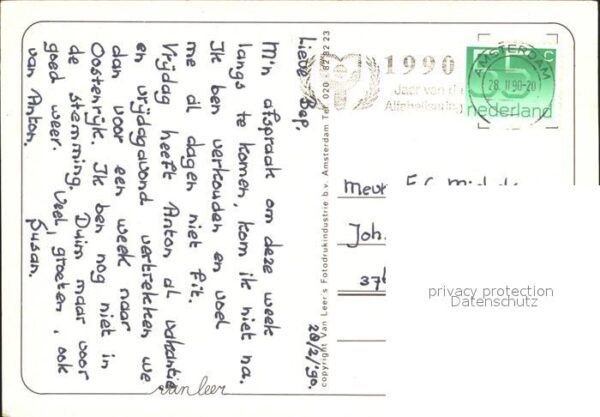 Lieve Bep,
M'n afspraak om deze week
langs te komen, kom ik niet na.
Ik ben verkouden en voel
me al dagen niet fit.
Vrijdag heeft Anton al vakantie
en vrijdagavond vertrekken we
dan voor een week naar
Oostenrijk. Ik ben nog niet in
de stemming. Duim maar voor
goed weer. Veel groeten, ook
van Anton.
Susan.
28/2/'90.
van leer
copyright Van Leer's Fotodrukindustrie b.v. Amsterdam Tel. 020
1990
Jaar van de
AMSTERDAM
28. II 90-20
C
nederland
Mevr.
Joh.
37
privacy protection
Datenschutz